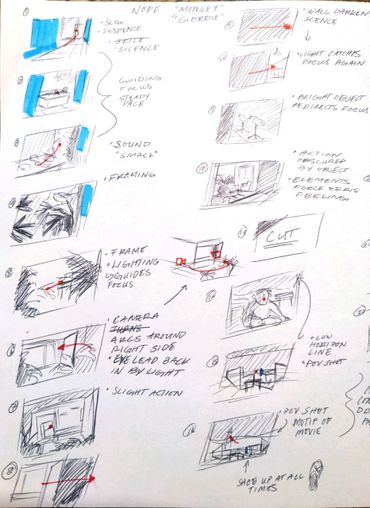 NOPE "MONKEY" "GORDIE"
①
• SLOW
SUSPENSE
• SILENCE
②
GUIDING
FOCUS
STEADY
PACE
• SOUND
"SMACK"
• FRAMING
• FRAME
• LIGHTING
GUIDES
FOCUS
• CAMERA
TURNS
ARCS AROUND
RIGHT SIDE
• EYE LEAD BACK
IN BY LIGHT
• SLIGHT ACTION
• WALL DARKENS
SCENCE
• LIGHT CATCHES
FOCUS AGAIN
• BRIGHT OBJECT
REDIRECTS FOCUS
• ACTION
OBSCURED
BY OBJECT
• ELEMENTS
FORCE
FEELING
CUT
• LOW
HORIZON
LINE
• POV SHOT
POV SHOT
MOTIF OF
MOVIE
SHOE UP AT ALL
TIMES